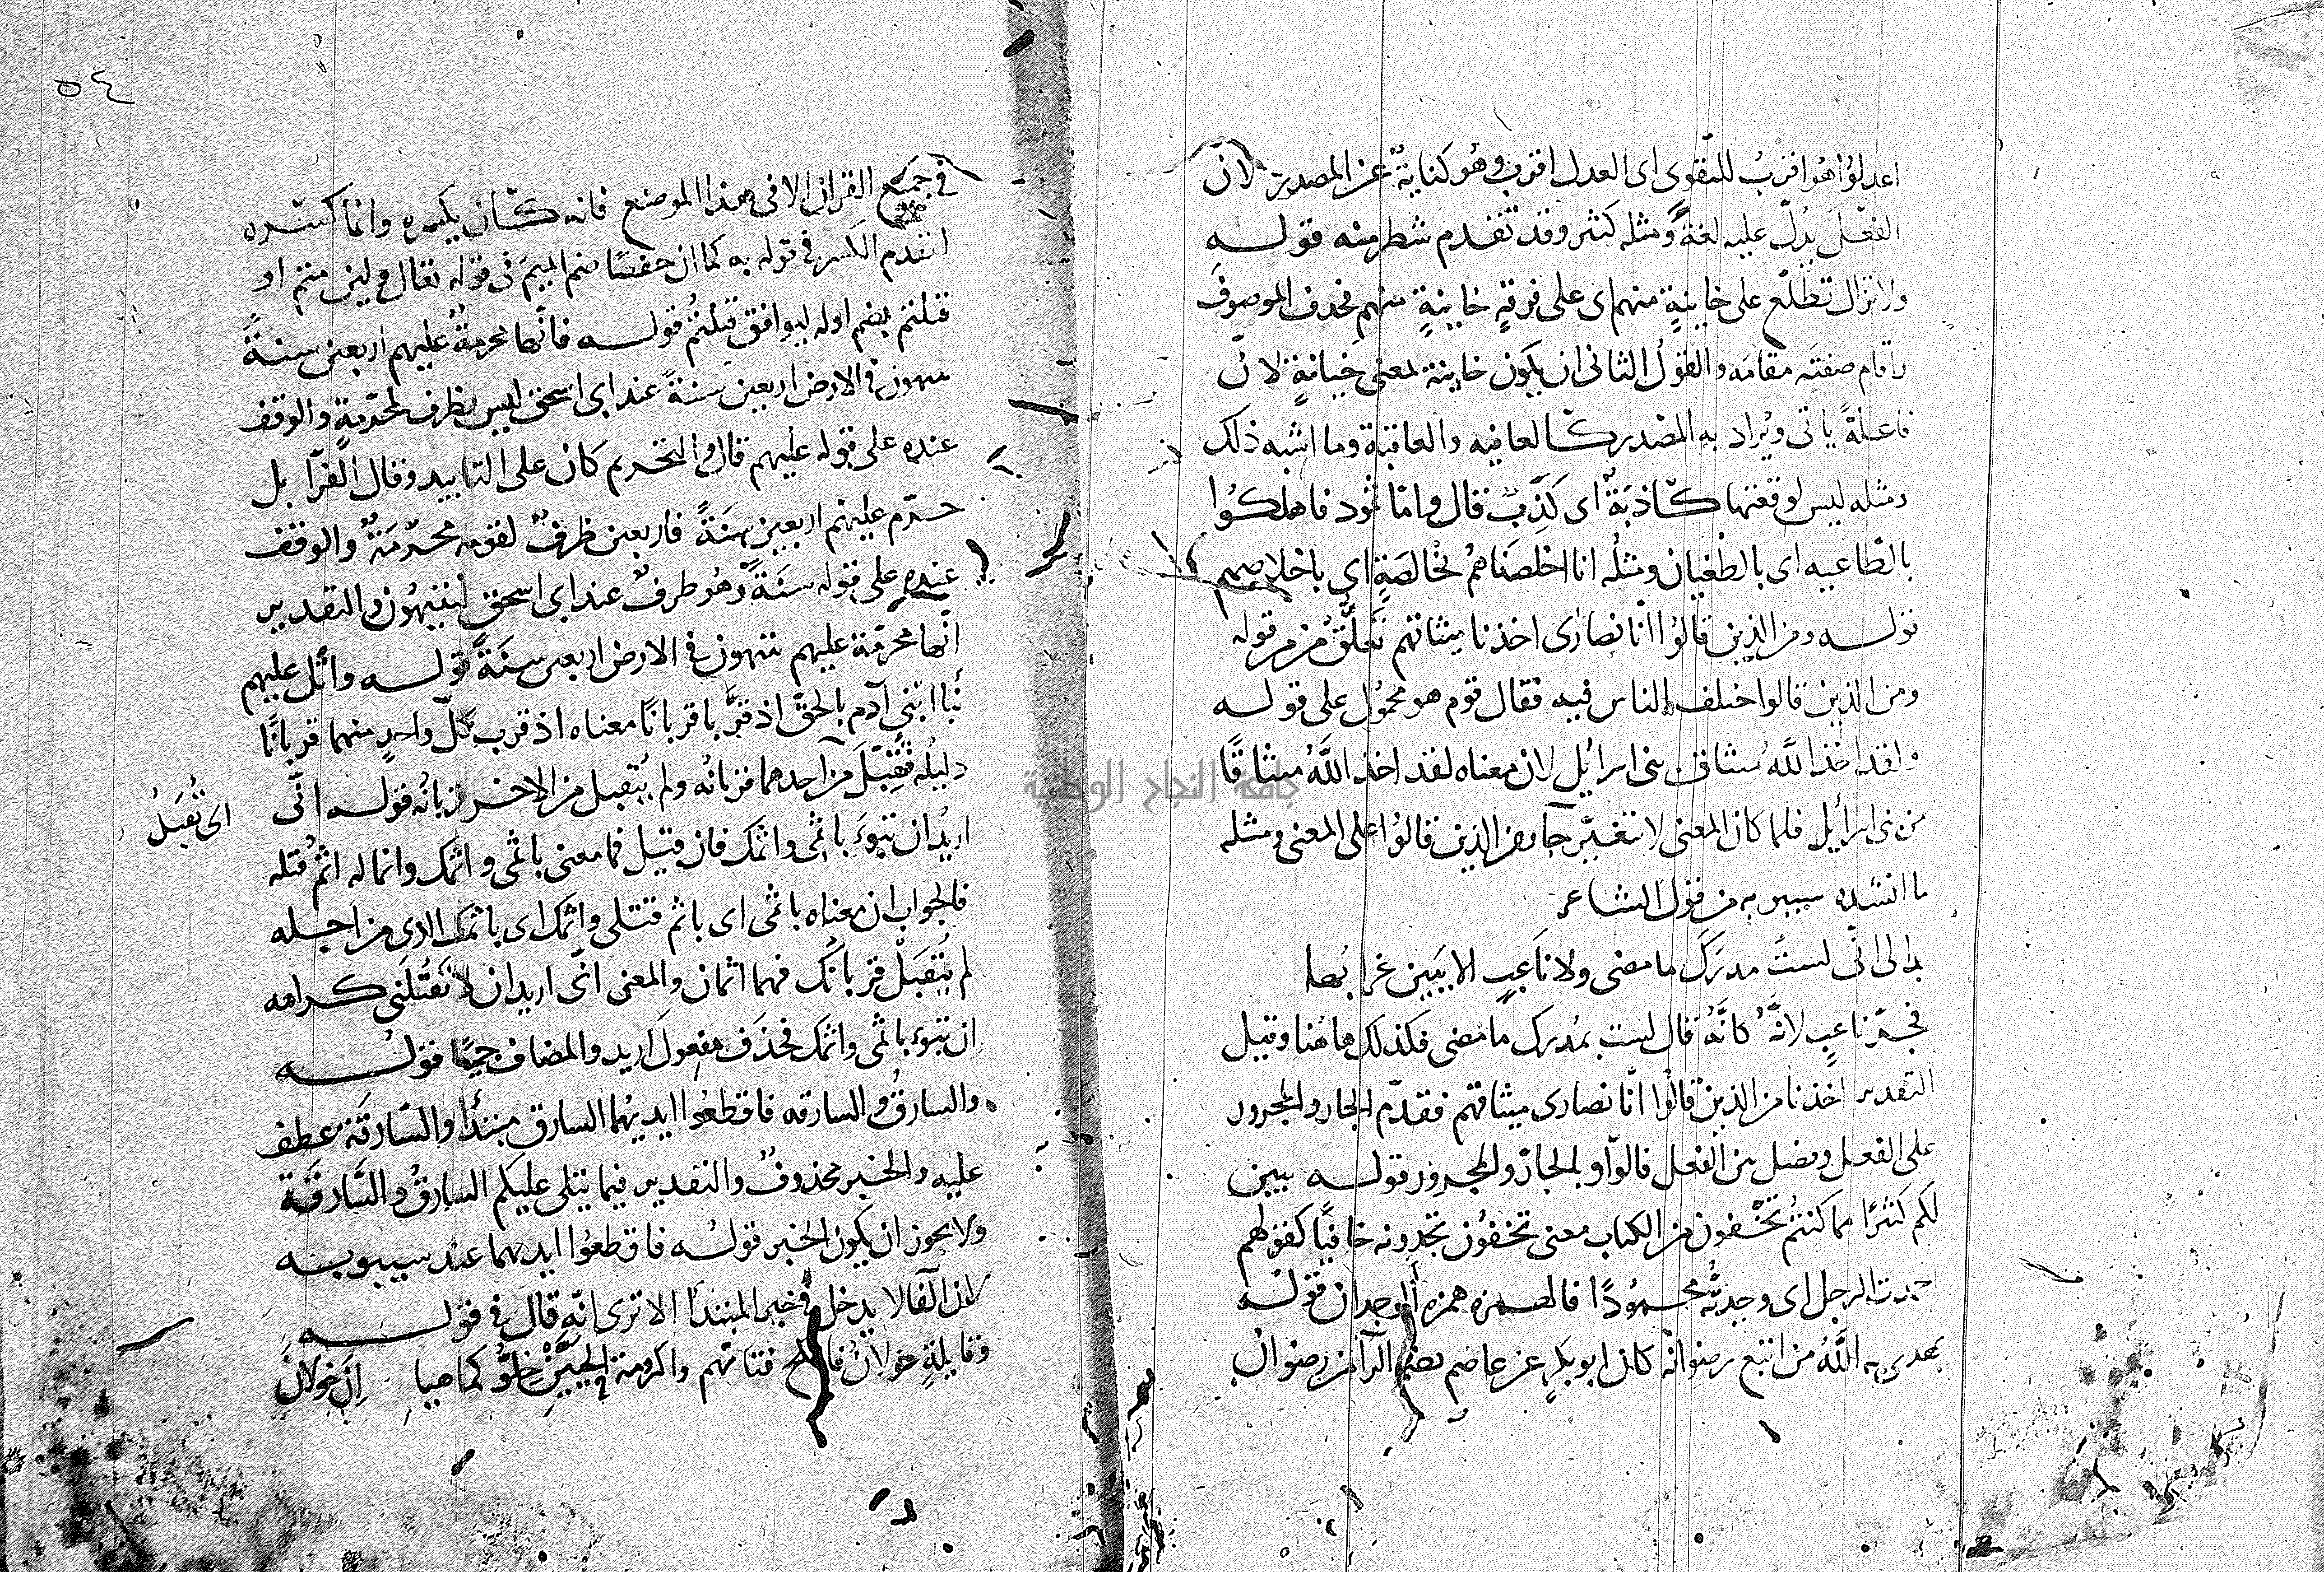 اعدلوا هو اقرب للتقوى اى العدل اقرب وهو كناية عن المصدر لان
الفعل يدل عليه لغة ومثله كثير وقد تقدم شطر منه قوله
ولا تزال تطلع على خاينة منهم اى على فرقة خاينة منهم فحذف الموصوف
واقام صفته مقامه والقول الثانى ان يكون خاينة بمعنى خيانة لان
فاعلة ياتى ويراد به المصدر كالعافيه والعاقبة وما اشبه ذلك
ومثله ليس لوقعتها كاذبة اى كذب قال واما ثمود فاهلكوا
بالطاغيه اى بالطغيان ومثله انا اخلصناهم بخالصة اى باخلاصهم
قوله ومن الذين قالوا انا نصارى اخذنا ميثاقهم تعلق من من قوله
ومن الذين قالوا اختلف الناس فيه فقال قوم هو محمول على قوله
ولقد اخذ الله ميثاق بنى اسرايل لان معناه لقد اخذ الله ميثاقا
من بنى اسرايل فلما كان المعنى لا يتغير جآ ومن الذين قالوا على المعنى ومثله
ما انشده سيبويه من قول الشاعر
بدا لى انى لست مدرك ما مضى ولا ناعب الا ببين غرابها
فجر ناعب لانه كانه قال لست بمدرك ما مضى فكذلك هاهنا وقيل
التقدير اخذنا من الذين قالوا انا نصارى ميثاقهم فقدم الجار والمجرور
على الفعل وفصل بين الفعل قالوا وبالجار والمجرور قوله يبين
لكم كثيرا مما كنتم تخفون من الكتاب معنى تخفون تجدونه خافيا كقولهم
احمدت الرجل اى وجدته محمودا فالهمزه همزه الوجدان قوله
يهدى به الله من اتبع رضوانه كان ابو بكر عن عاصم يضم الرآ من رضوان
٥٤
فى جميع القرآن الا فى هذا الموضع فانه كان يكسره وانما كسره
لتقدم الكسر فى قوله به كما ان حفصا ضم الميم فى قوله تعالى ولين متم او
قتلتم بضم اوله ليوافق قتلتم قوله فانها محرمة عليهم اربعين سنة
يتيهون فى الارض اربعين سنة عند ابى اسحق ليس بظرف لمحرمة والوقف
عنده على قوله عليهم قال والتحريم كان على التابيد وقال الفرآ بل
حرم عليهم اربعين سنة فاربعين ظرف لقوله محرمة والوقف
عنده على قوله سنة وهو ظرف عند ابى اسحق ليتيهون والتقدير
انها محرمة عليهم يتيهون فى الارض اربعين سنة قوله واتل عليهم
نبا ابنى آدم بالحق اذ قربا قربانا معناه اذ قرب كل واحد منهما قربانا
دليله فتقبل من احدهما قربانه ولم يتقبل من الاخر قربانه قوله انى
اى تقبل
اريد ان تبوء باثمى واثمك فان قيل فما معنى باثمى واثمك وانما له اثم قتله
فالجواب ان معناه باثمى اى باثم قتلى واثمك اى باثمك الذى من اجله
لم يتقبل قربانك فهما اثمان والمعنى انى اريد ان لا تقتلنى كراهه
ان تبوء باثمى واثمك فحذف مفعول اريد والمضاف جميعا قوله
والسارق والسارقه فاقطعوا ايديهما السارق مبتدأ والسارقة عطف
عليه والخبر محذوف والتقدير فيما يتلى عليكم السارق والسارقة
ولا يجوز ان يكون الخبر قوله فاقطعوا ايديهما عند سيبويه
لان الفا لا يدخل فى خبر المبتدا الا ترى انه قال فى قوله
وقايلة خولان فانكح فتاتهم واكرومة الحيين خلو كما هيا
ان خولان